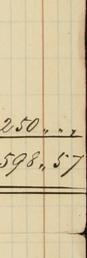 250 „ „
598 „ 57